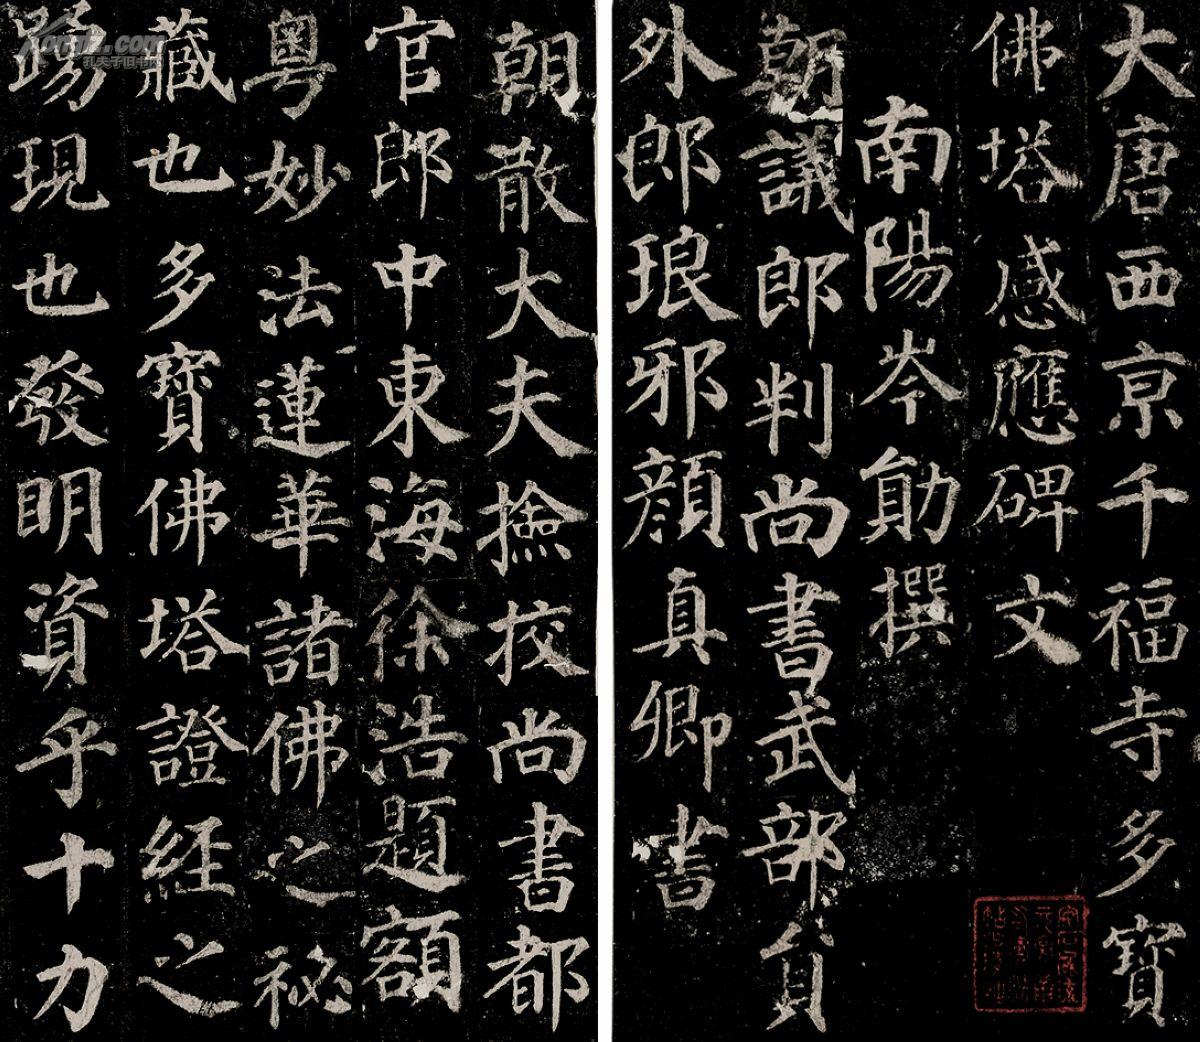 大唐西亰千福寺多寶
佛塔感應碑文
南陽岑勛撰
朝議郎判尚書武部貟
外郎琅邪顏真卿書
朝散大夫撿挍尚書都
官郎中東海徐浩題額
粤妙法蓮華諸佛之祕
藏也多寶佛塔證經之
踴現也發明資乎十力
Kongfz.com
孔夫子旧书网